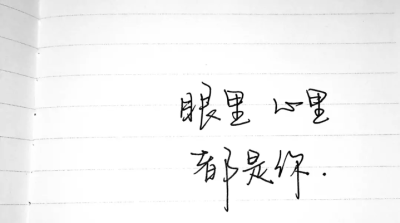 眼里 心里
都是你.